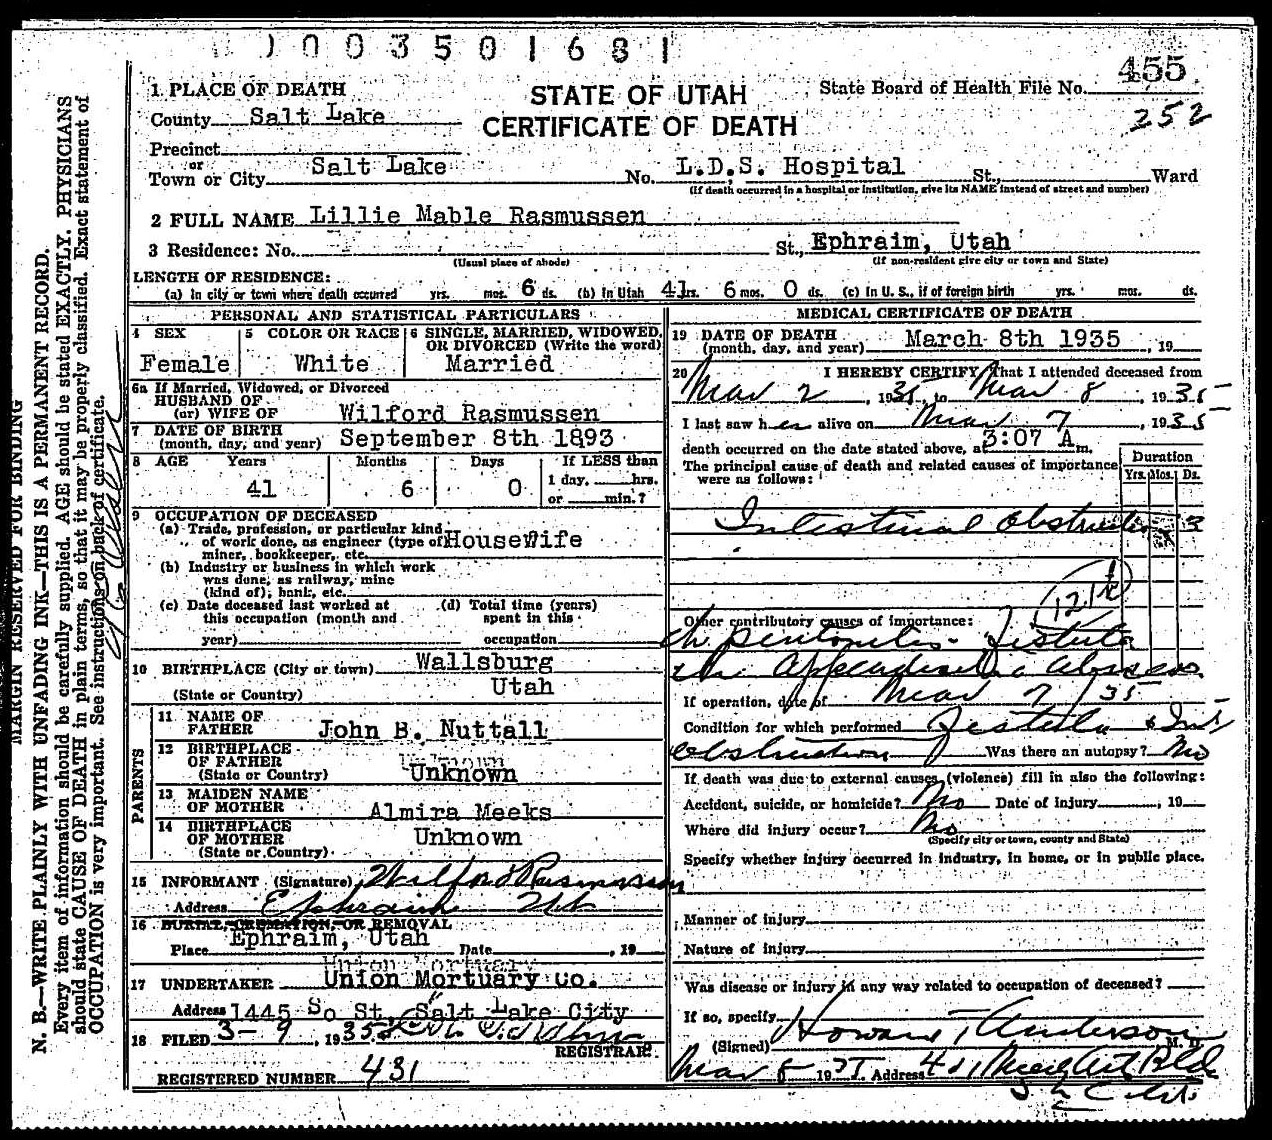 003501681
455
1 PLACE OF DEATH
STATE OF UTAH
State Board of Health File No.
County Salt Lake
CERTIFICATE OF DEATH
252
Precinct
or
Town or City Salt Lake No. L.D.S. Hospital St., Ward
(If death occurred in a hospital or institution, give its NAME instead of street and number)
2 FULL NAME Lillie Mable Rasmussen
3 Residence: No. - - St., Ephraim, Utah
(Usual place of abode) (If non-resident give city or town and State)
LENGTH OF RESIDENCE:
(a) In city or town where death occurred yrs. mos. 6 ds. (b) In Utah 41 yrs. 6 mos. 0 ds. (c) In U. S., if of foreign birth yrs. mos. ds.
PERSONAL AND STATISTICAL PARTICULARS
4 SEX 5 COLOR OR RACE 6 SINGLE, MARRIED, WIDOWED, OR DIVORCED (Write the word)
Female White Married
6a If Married, Widowed, or Divorced
HUSBAND OF
(or) WIFE OF Wilford Rasmussen
7 DATE OF BIRTH
(month, day, and year) September 8th 1893
8 AGE Years Months Days If LESS than
1 day, hrs.
41 6 0 or min.?
9 OCCUPATION OF DECEASED
(a) Trade, profession, or particular kind
of work done, as engineer (type of Housewife
miner, bookkeeper, etc.
(b) Industry or business in which work
was done, as railway, mine
(kind of), bank, etc.
(c) Date deceased last worked at (d) Total time (years)
this occupation (month and spent in this
year) occupation
10 BIRTHPLACE (City or town) Wallsburg
(State or Country) Utah
PARENTS
11 NAME OF
FATHER John B. Nuttall
12 BIRTHPLACE
OF FATHER
(State or Country) Unknown
13 MAIDEN NAME
OF MOTHER Almira Meeks
14 BIRTHPLACE
OF MOTHER Unknown
(State or Country)
15 INFORMANT (Signature) Wilford Rasmussen
Address Ephraim Ut
16 BURIAL, CREMATION, OR REMOVAL
Place Ephraim, Utah Date , 19
17 UNDERTAKER Union Mortuary Co.
Address 1445 So St, Salt Lake City
18 FILED 3-9, 1935
REGISTRAR.
REGISTERED NUMBER 431
MEDICAL CERTIFICATE OF DEATH
19 DATE OF DEATH
(month, day, and year) March 8th 1935, 19
20 I HEREBY CERTIFY, That I attended deceased from
Mar 2, 1935, to Mar 8, 1935
I last saw her alive on Mar 7, 1935
death occurred on the date stated above, at 3:07 A.m.
The principal cause of death and related causes of importance
were as follows:
Duration
Yrs. Mos. Ds.
Intestinal Obstruction 3
121b
Other contributory causes of importance:
Ch peritonitis - Fistula
If operation, date of Mar 7/35
Condition for which performed Fistula & Int'l
Obstruction Was there an autopsy? No
If death was due to external causes (violence) fill in also the following:
Accident, suicide, or homicide? No Date of injury , 19
Where did injury occur? No
(Specify city or town, county and State)
Specify whether injury occurred in industry, in home, or in public place.
Manner of injury
Nature of injury
Was disease or injury in any way related to occupation of deceased?
If so, specify
(Signed) Howard T Anderson M. D.
Mar 8 1935. Address
MARGIN RESERVED FOR BINDING
N. B.—WRITE PLAINLY WITH UNFADING INK—THIS IS A PERMANENT RECORD.
Every item of information should be carefully supplied. AGE should be stated EXACTLY. PHYSICIANS
should state CAUSE OF DEATH in plain terms, so that it may be properly classified. Exact statement of
OCCUPATION is very important. See instructions on back of certificate.